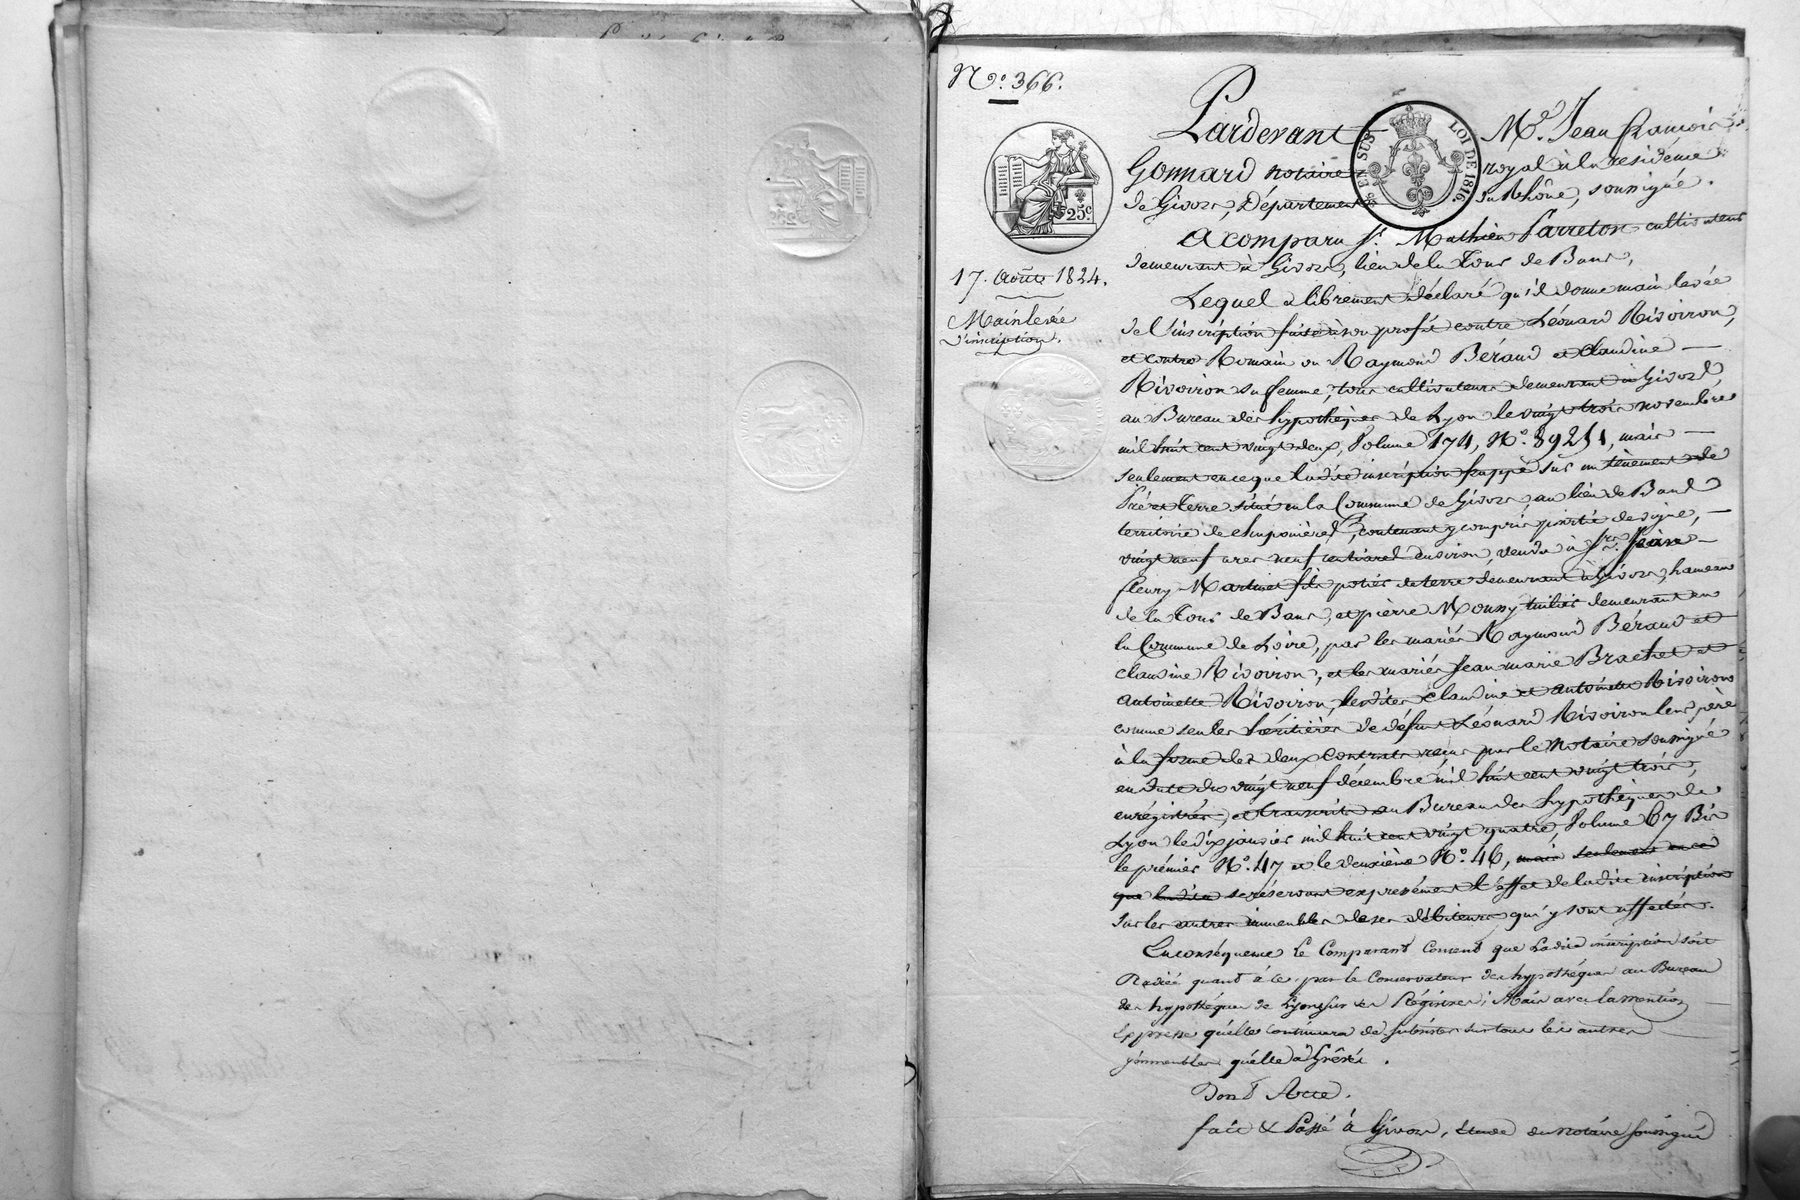 N.º 366.
Pardevant Mᵉ. Jean françois
Gonnard notaire royal à la résidence
de Givors, Département du Rhône, soussigné.
25 EN SUS
LOI DE 1816.
25.c
17. Août 1824.
Mainlevée
d'inscription.
A comparu sʳ. Mathieu Parreton cultivateur
demeurant à Givors, lieu de la Tour de Bans,
Lequel a librement déclaré qu'il donne main levée
de l'inscription faite à son profit contre Léonard Rivoiron,
et contre Romain ou Raymond Béraud et Claudine
Rivoiron sa femme, tous cultivateurs demeurant à Givors,
au Bureau des hypothèques de Lyon le vingt trois novembre
mil huit cent vingt deux, Volume 174, Nº. 89251, mais
seulement en ce que ladite inscription frappe sur un tènement de
Pré et terre situé en la Commune de Givors, au lieu de Bans
territoire de , contenant y compris partie de vigne,
vingt neuf ares neuf centiares environ, vendu à sʳˢ.
fleury Martinet fils potier de terre demeurant à Givors, hameau
de la Tour de Bans, et pierre Moussy demeurant en
la Commune de Loire, par les mariés Raymond Béraud et
Claudine Rivoiron, et les mariés Jean marie Brachet et
antoinette Rivoiron, lesdites Claudine et antoinette Rivoiron
comme seules héritières de défunt Léonard Rivoiron leur père
à la forme des deux contrats reçus par le Notaire soussigné
en date du vingt neuf décembre mil huit cent vingt trois,
enrégistrés, et transcrits au Bureau des hypothèques de
Lyon le dix janvier mil huit cent vingt quatre, Volume 67 Bis
le prémier Nº. 47 et le deuxième Nº. 46, mais seulement en ce
que ladite se réservant expressément l'effet de ladite inscription
sur les autres immeubles de ses débiteurs qui y sont affectés.
En conséquence le Comparant consent que ladite inscription soit
Radiée quant à ce, par le Conservateur des hypothèques au Bureau
des hypothèques de Lyon sur ses Régistres; Mais avec la mention
Expresse qu'elle continuera de subsister sur tous les autres
immeubles qu'elle a Grévé.
Dont Acte.
fait & Passé à Givors, Etude du notaire soussigné